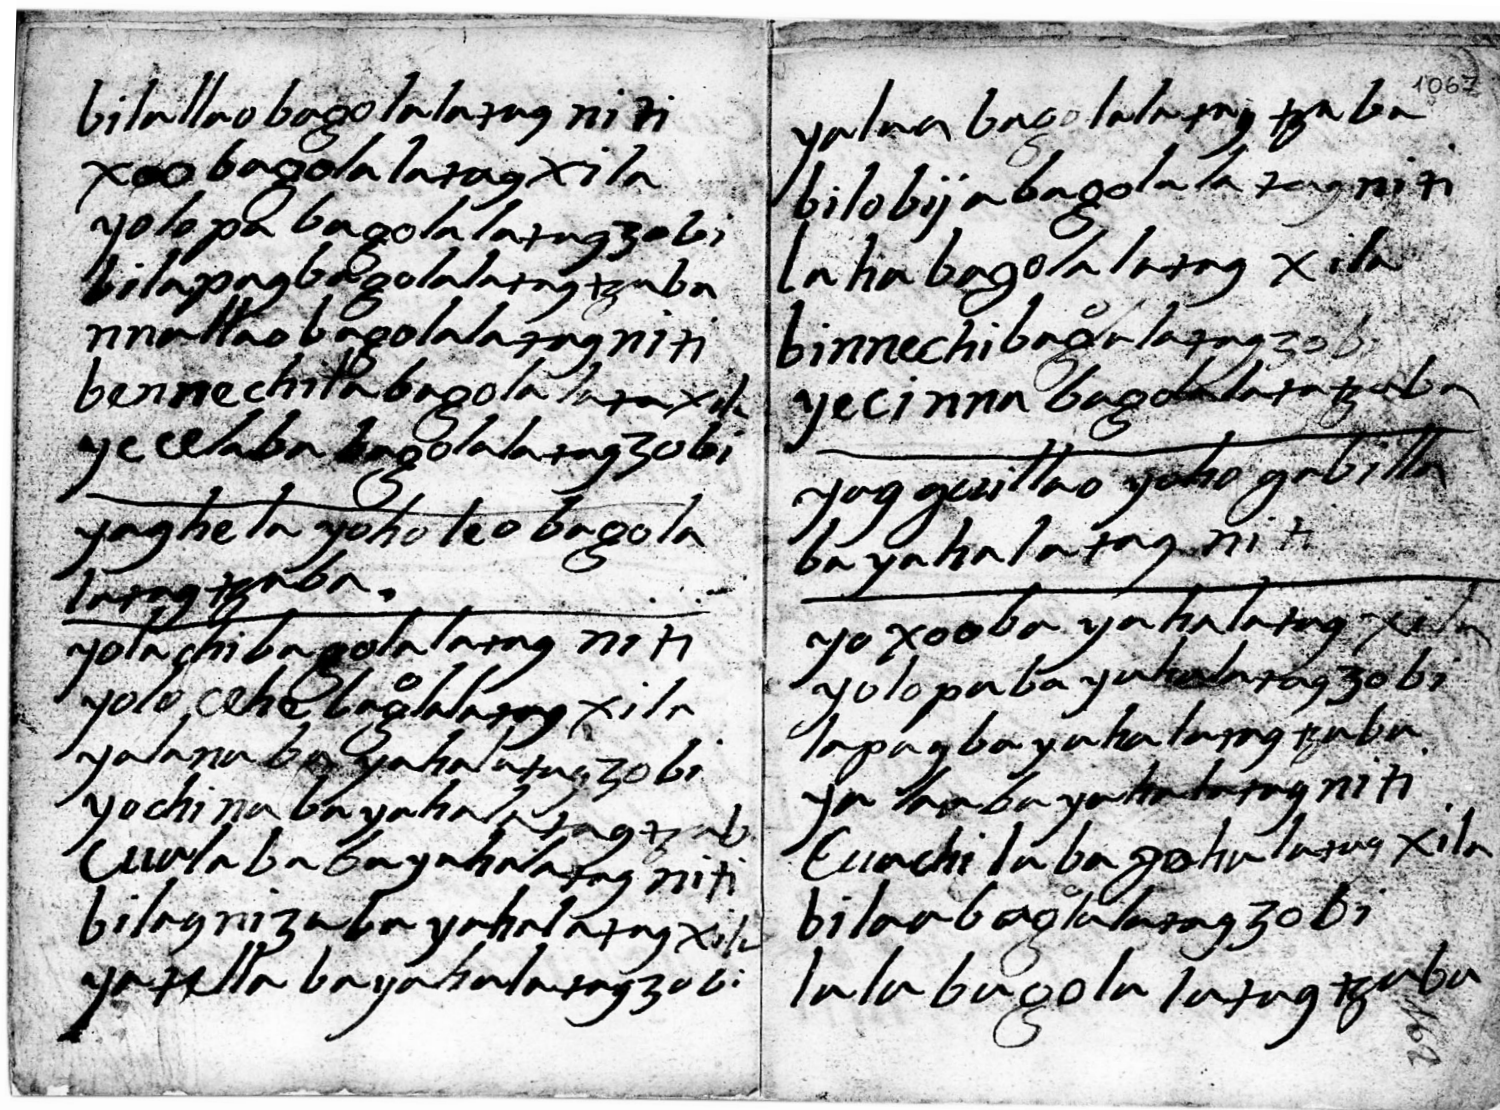 bilallao bagolalatag niti
xoo bagola latag xila
yolopa bagolalatagzobi
bilapagbagolalatagtzaba
nnallao bagolalatagniti
bennechilla bagola lataxila
yecelaba bagolalatagzobi
yaghela yoho leo bagola
latagtzaba.
yolachibagolalatag niti
yolo cehe bagolalatag xila
yalanaba yahalatagzobi
yochinabayahalatagtzab
Cuulaba bayahalatag niti
bilagnizaba yahalatagxila
yatella bayahalatagzobi
1067
yalaa bagolalatag tzaba
bilobijabagolala tagniti
laha bagola latag xila
binnechibagolalatagzobi
yecinna bagolalatatzaba
yag guillao yoho gabilla
bayahalatag niti
yoxooba yahalatag xila
yolopabayahalatagzobi
lapagbayahalatagtzaba
ya laabayahalatagniti
Cuachilabagohalatag xila
bilaabagolalatagzobi
lala bagola latag tzaba
162